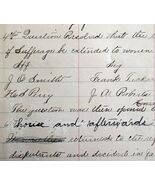 Question Resolved that the
of Suffrage be extended to women
Aff Neg
J. O. Smith Frank
Hod Perry J. A. Roberts
The question was then opened
house and afterwards
returned to
disputants and decided in fa